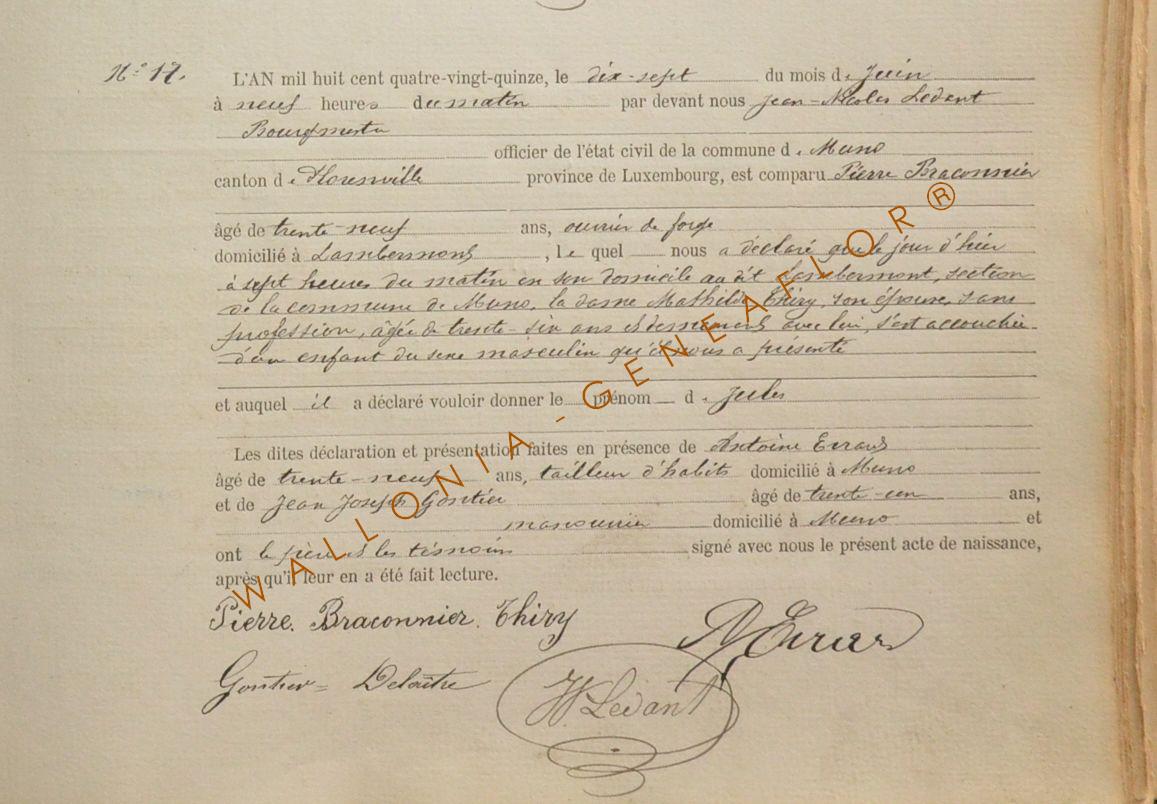 N° 17.
L'AN mil huit cent quatre-vingt-quinze, le dix-sept du mois de Juin
à neuf heures du matin par devant nous Jean-Nicolas Ledant
Bourgmestre
officier de l'état civil de la commune de Muno
canton de Florenville province de Luxembourg, est comparu Pierre Braconnier
âgé de trente-neuf ans, ouvrier de forge
domicilié à Lambermont, lequel nous a déclaré que le jour d'hier
à sept heures du matin en son domicile au dit Lambermont, section
de la commune de Muno, la dame Mathilde Thiry, son épouse, sans
profession, âgée de trente-six ans et demeurant avec lui, s'est accouchée
d'un enfant du sexe masculin qu'il nous a présenté
et auquel il a déclaré vouloir donner le prénom de Jules
Les dites déclaration et présentation faites en présence de Antoine
âgé de trente-neuf ans, tailleur d'habits domicilié à Muno
et de Jean Joseph Gontier âgé de trente-un ans,
manouvrier domicilié à Muno et
ont le père et les témoins signé avec nous le présent acte de naissance,
après qu'il leur en a été fait lecture.
Pierre. Braconnier. Thiry
Gontier = Delaître
Ledant
WALLONIA-GENEAFLOR®